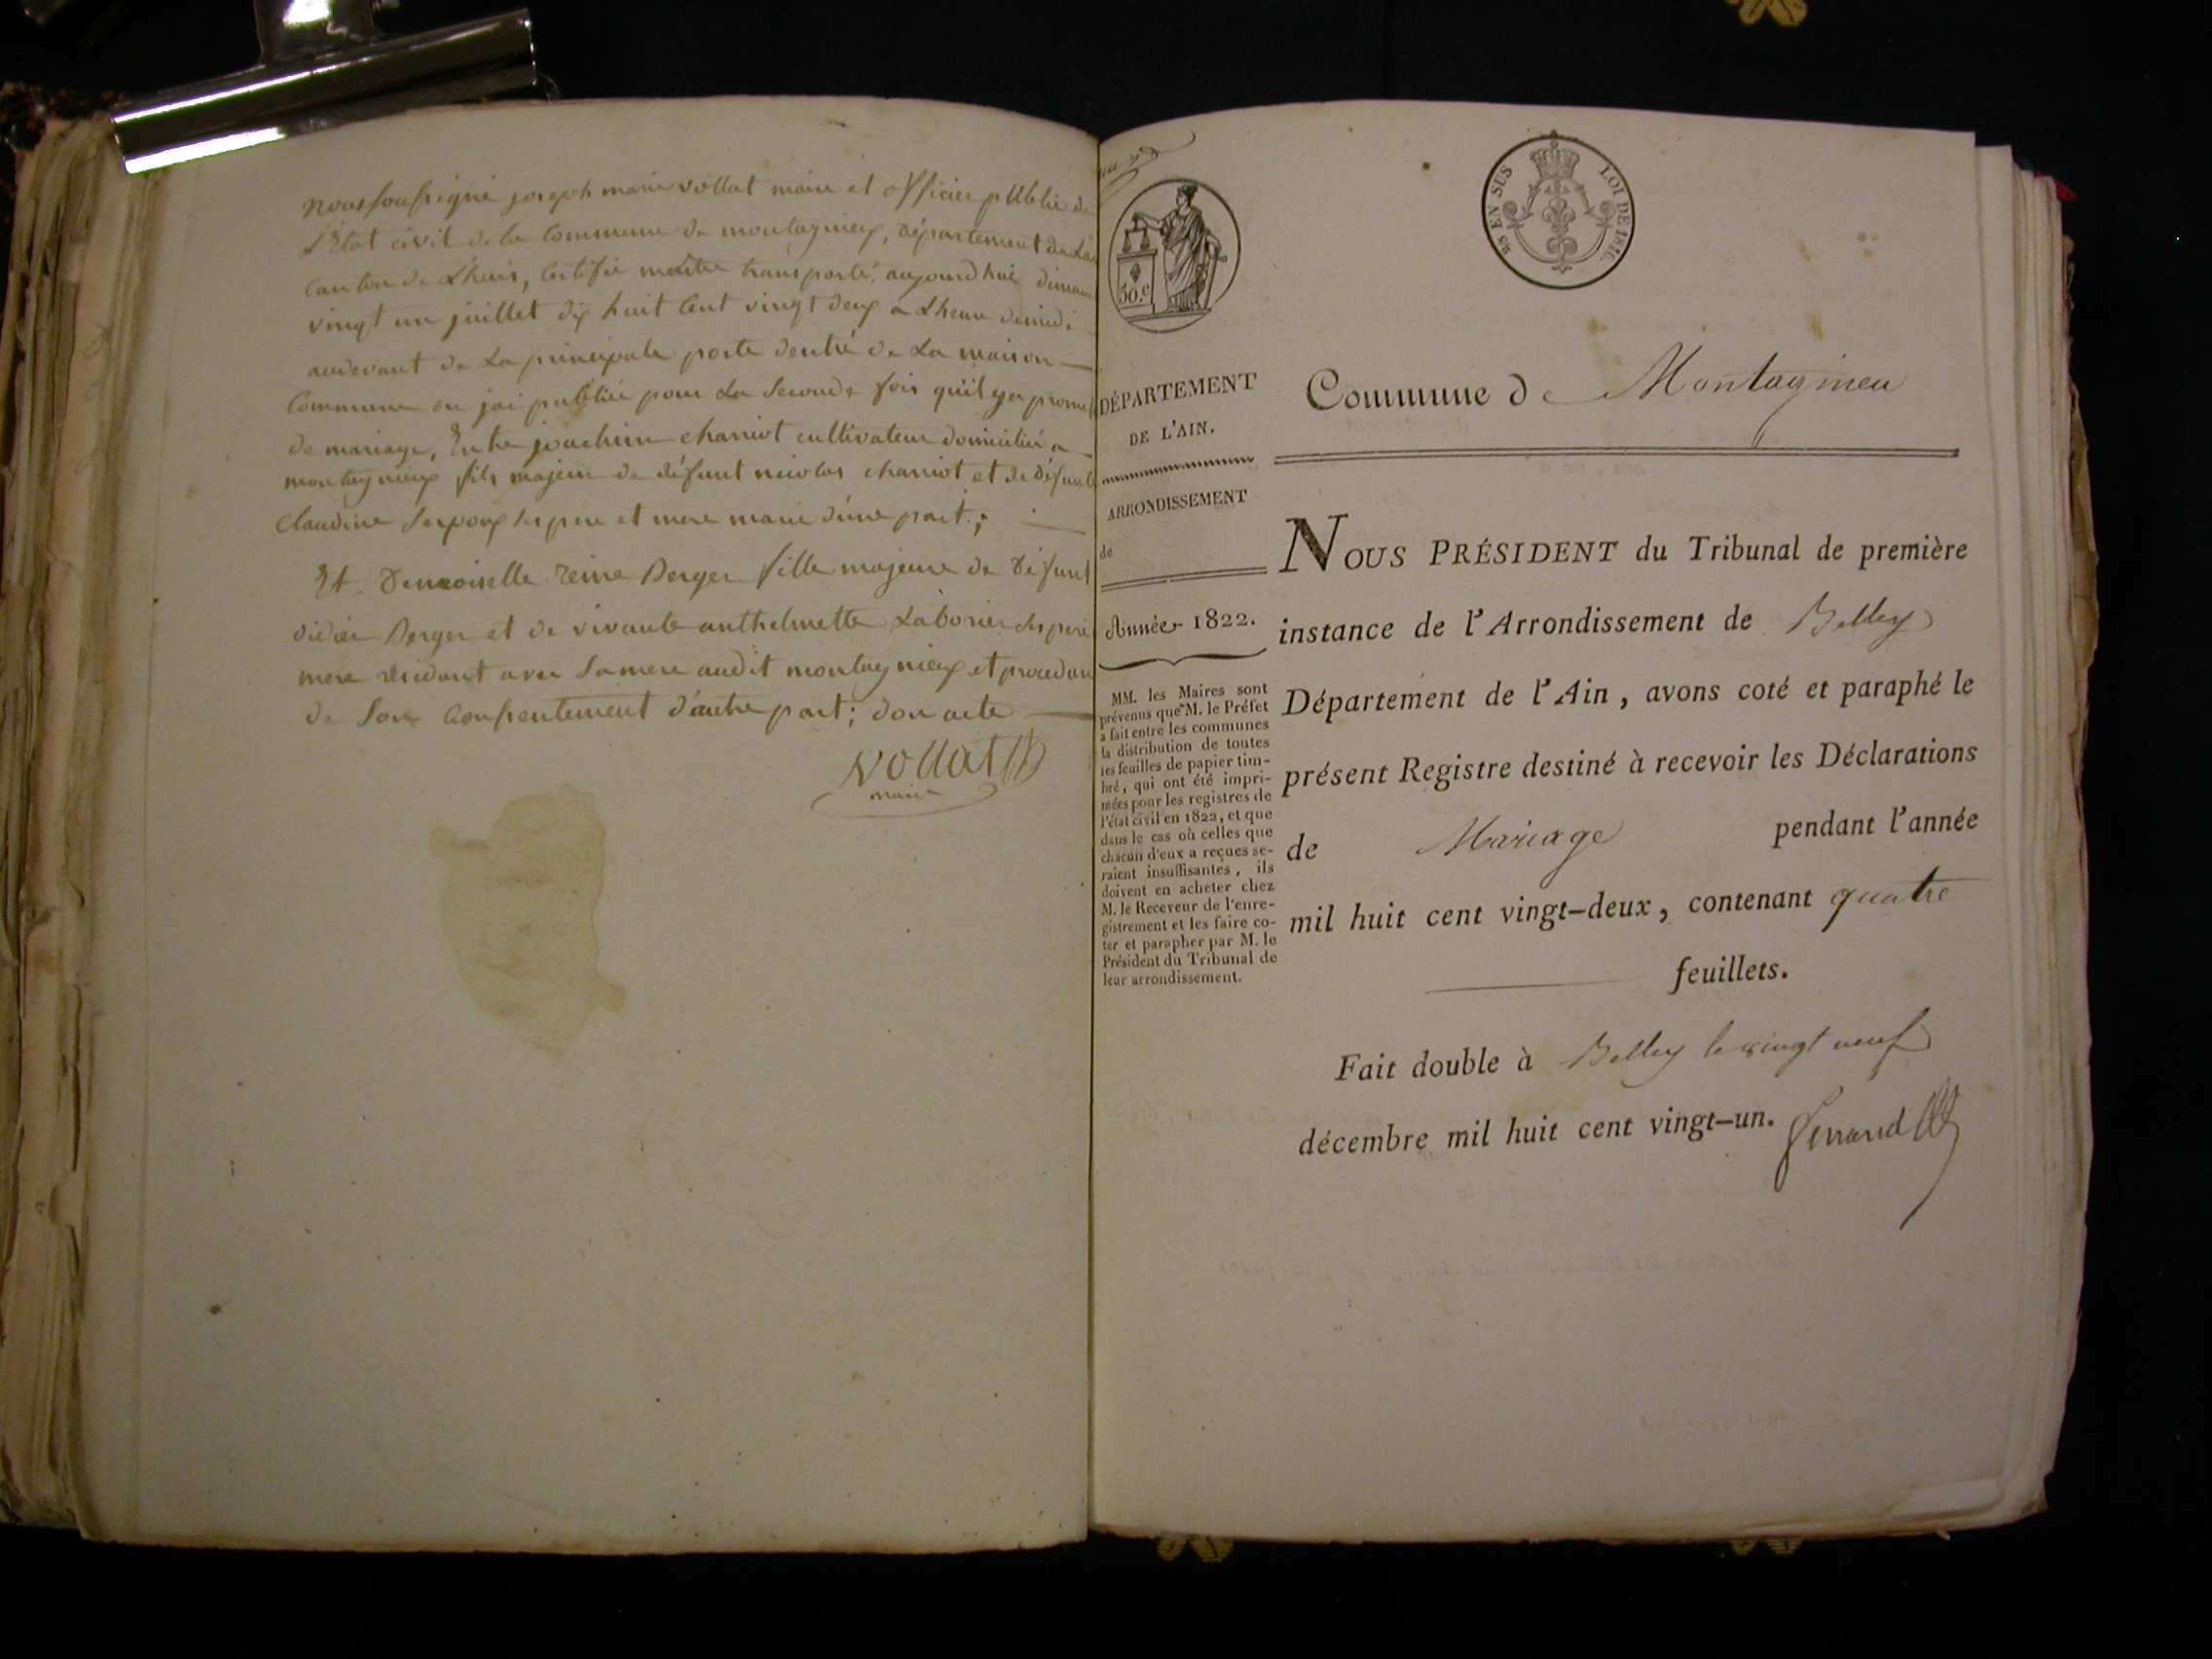 nous soussigné joseph marie vollat maire et officier publié de
L'Etat civil de la Commune de montagnieux, département de L'ai
Canton de Lhuis, Certifie mêtre transporté, aujourd'hui diman
vingt un juillet dix huit Cent vingt deux a Lheure de midi
audevant de La principale porte dentré de La maison
Commune ou jai publiée pour La Seconde fois quil ya prome
de mariage, Entre joachim charriot cultivateur domicilié a
montagnieux fils majeur de défunt nicolas charriot et de défunte
Claudine ses pere et mere marie d'une part;
Et Demoiselle reine Berger fille majeure de défunt
didier Berger et de vivante anthelmette Laborier ses pere
mere résidant avec Sa mere audit montagnieux et procedan
de Son Consentement d'autre part; don acte
vollat
maire
50.c
CS EN SUS
LOI DE 1816.
DÉPARTEMENT
DE L'AIN.
ARRONDISSEMENT
de
Année 1822.
MM. les Maires sont
prévenus que M. le Préfet
a fait entre les communes
la distribution de toutes
les feuilles de papier tim-
bré, qui ont été impri-
mées pour les registres de
l'état civil en 1822, et que
dans le cas où celles que
chacun d'eux a reçues se-
raient insuffisantes, ils
doivent en acheter chez
M. le Receveur de l'enre-
gistrement et les faire co-
ter et parapher par M. le
Président du Tribunal de
leur arrondissement.
Commune de Montagnieu
NOUS PRÉSIDENT du Tribunal de première
instance de l'Arrondissement de Belley
Département de l'Ain, avons coté et paraphé le
présent Registre destiné à recevoir les Déclarations
de Mariage pendant l'année
mil huit cent vingt-deux, contenant quatre
feuillets.
Fait double à Belley le vingt neuf
décembre mil huit cent vingt-un.